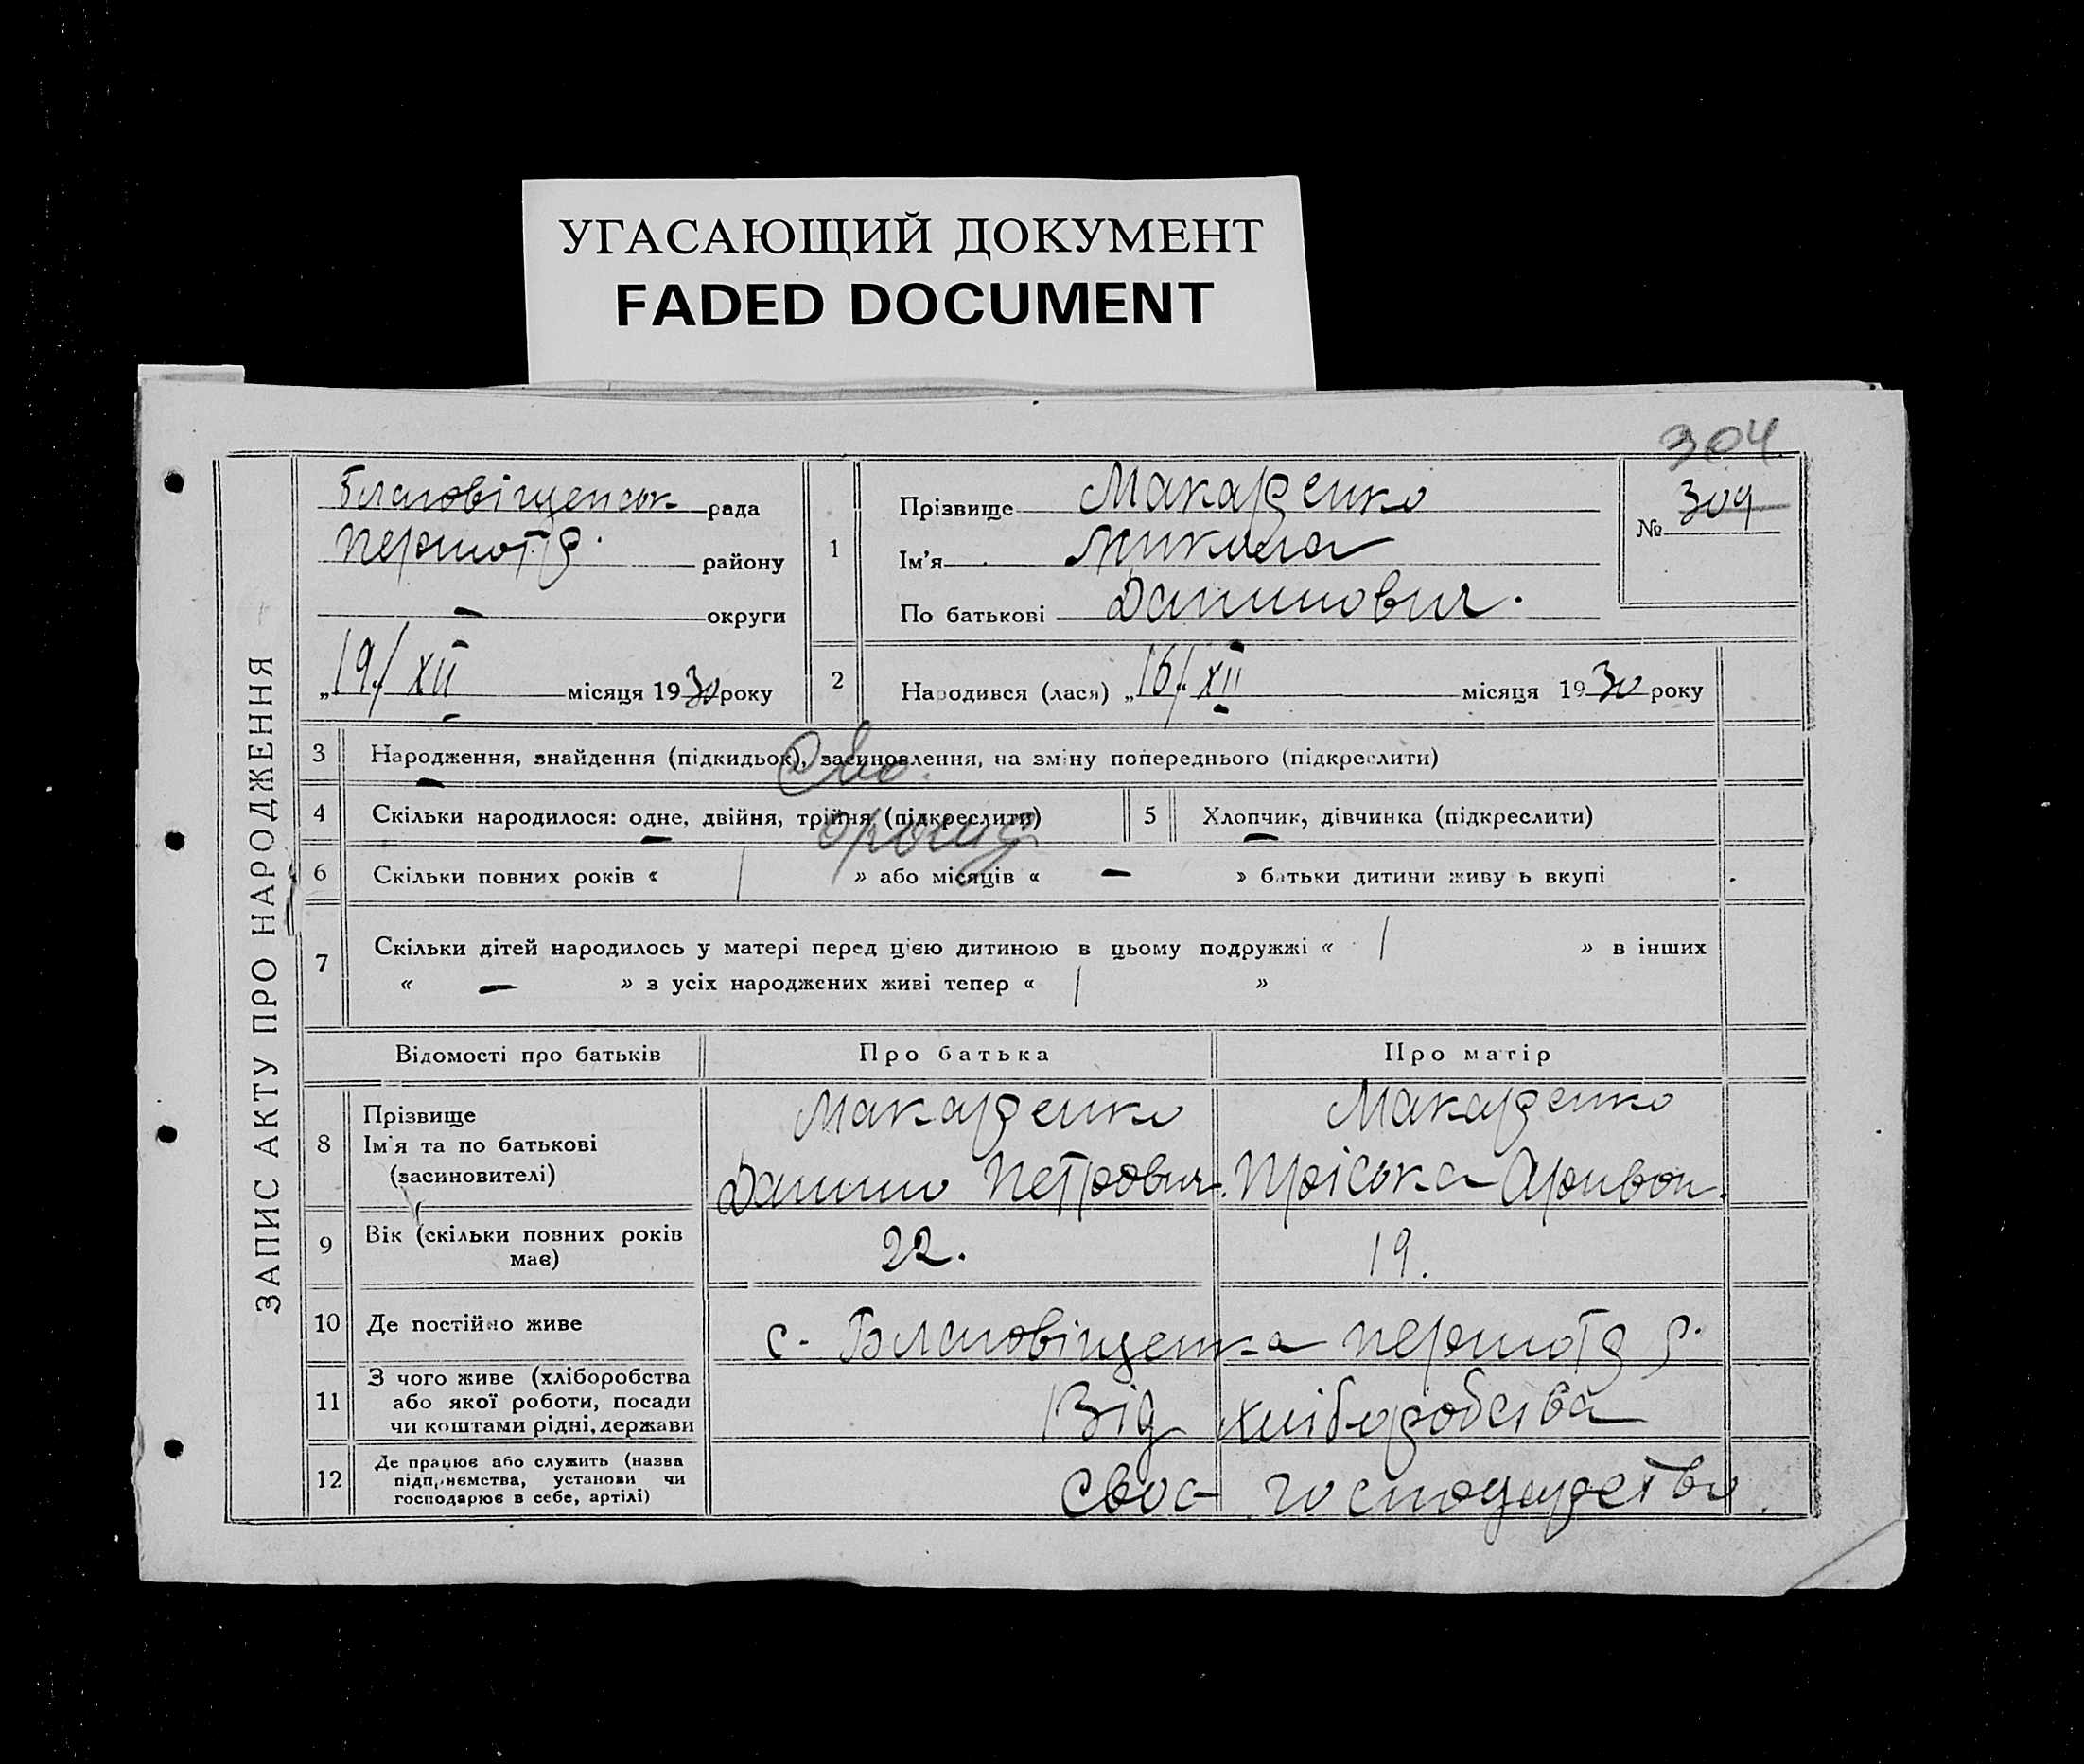 УГАСАЮЩИЙ ДОКУМЕНТ
FADED DOCUMENT
304
ЗАПИС АКТУ ПРО НАРОДЖЕННЯ
Благовіщенськ рада
району
— округи
„19/XII місяця 1930 року
1
Прізвище Макаренко
Ім'я Микола
По батькові Данилович.
№ 309
2
Народився (лася) „16/XII місяця 1930 року
3 Народження, знайдення (підкидьок), засиновлення, на зміну попереднього (підкреслити)
4 Скільки народилося: одне, двійня, трійня (підкреслити)
5 Хлопчик, дівчинка (підкреслити)
6 Скільки повних років « 1 » або місяців « — » батьки дитини живу ь вкупі
7 Скільки дітей народилось у матері перед цією дитиною в цьому подружжі « 1 » в інших
« — » з усіх народжених живі тепер « 1 »
Відомості про батьків
Про батька
Про матір
8 Прізвище
Ім'я та по батькові
(засиновителі)
Макаренко
Данило Петрович.
Макаренко
Пріська
9 Вік (скільки повних років
має)
22.
19.
10 Де постійно живе
с. Благовіщенка р.
11 З чого живе (хліборобства
або якої роботи, посади
чи коштами рідні, держави
Від хліборобства
12 Де працює або служить (назва
підприємства, установи чи
господарює в себе, артілі)
своє господарство.